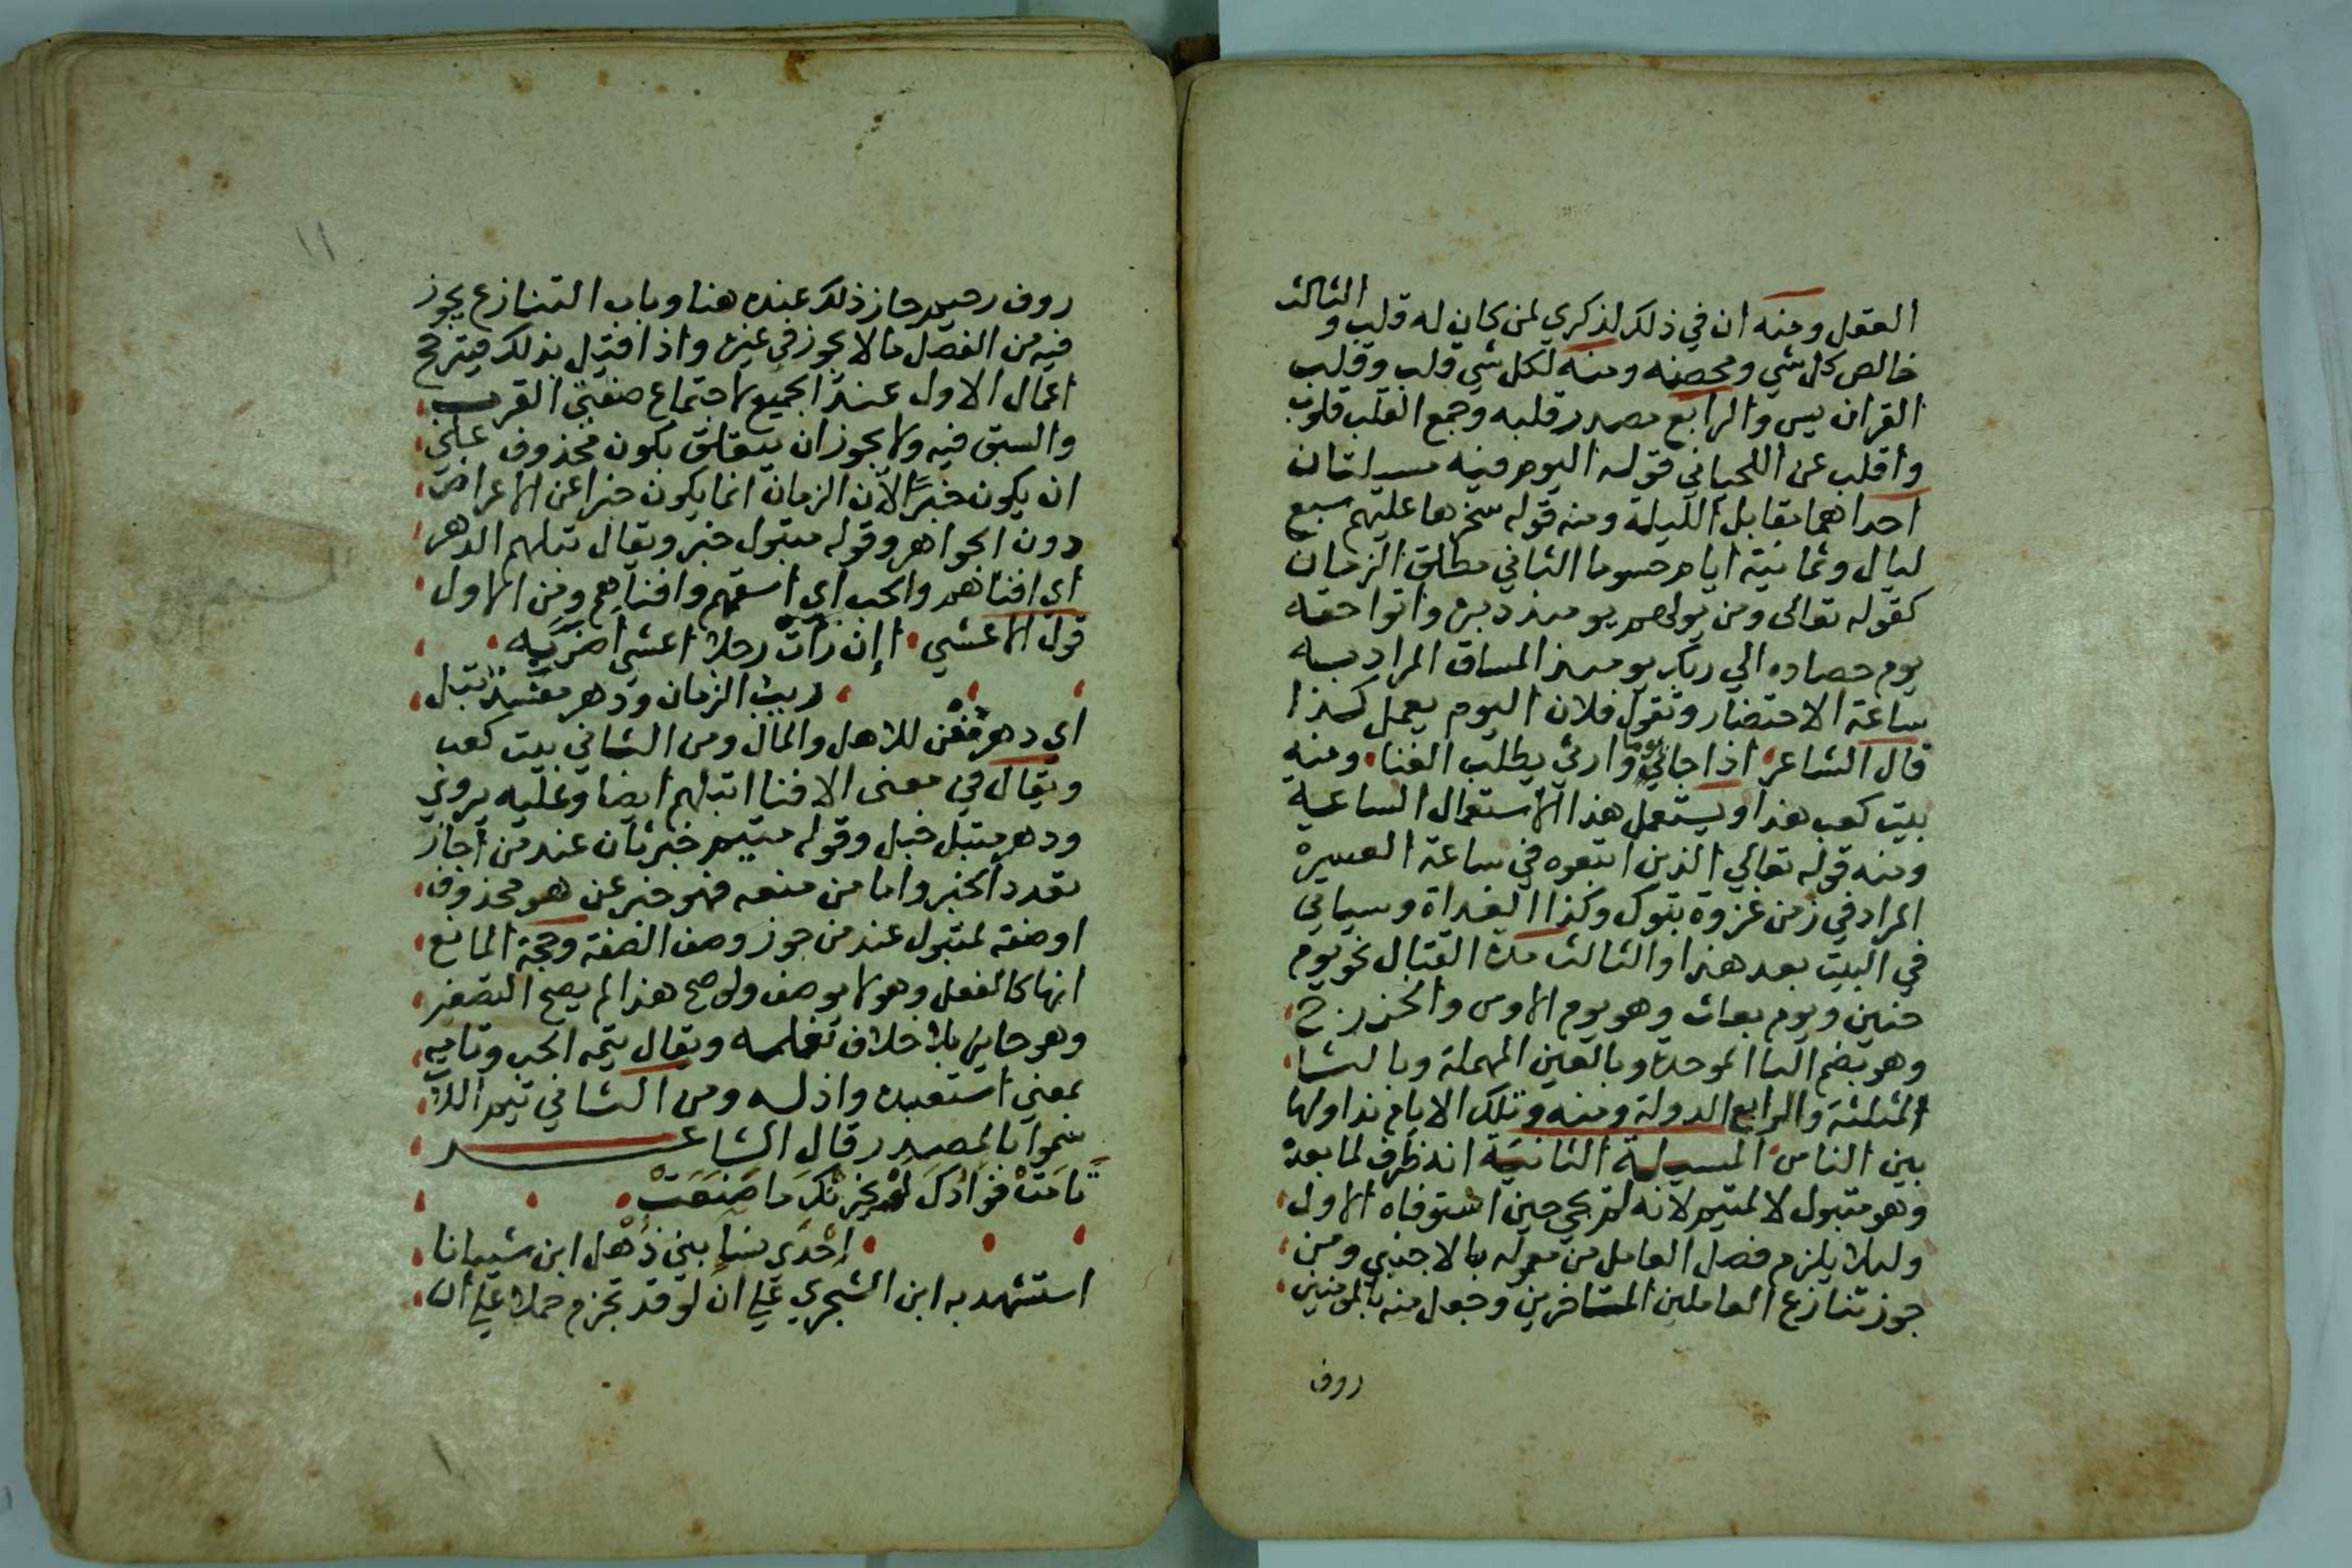 العقل ومنه ان في ذلك لذكري لمن كان له قلب والثالث
خالص كل شي ومحضه ومنه لكل شي قلب وقلب
القران يس والرابع مصدر قلبه وجمع القلب قلوب
واقلب عن اللحياني قوله اليوم فيه مسيلتان
احداهما مقابل الليلة ومنه قوله سخرها عليهم سبع
ليال وثمانية ايام حسوما الثاني مطلق الزمان
كقوله تعالى ومن يولهم يوميذ دبره واتوا حقه
يوم حصاده الي ربك يوميذ المساق المراد به
ساعة الاحتضار وتقول فلان اليوم يعمل كذا
قال الشاعر اذا جاني يوما وارثي يطلب الغنا ومنه
بيت كعب هذا ويستعمل هذا الاستعمال الساعة
ومنه قوله تعالي الذين اتبعوه في ساعة العسرة
المراد في زمن غزوة تبوك وكذا الغداة وسياتي
في البيت بعد هذا والثالث مدة القتال نحو يوم
حنين ويوم بعاث وهو يوم الاوس والخزرج
وهو بضم البا الموحدة وبالعين المهملة وبالثا
المثلثة والرابع الدولة ومنه وتلك الايام نداولها
بين الناس المسيلة الثانية انه ظرف لما بعده
وهو متبول لا لمتيم لانه لم يجي حين استوفاه الاول
وليلا يلزم فصل العامل من معموله بالاجنبي ومن
جوز تنازع العاملين المتاخرين وجعل منه بالمومنين
روف
١١
روف رحيم جاز ذلك عنده هنا وباب التنازع يجوز
فيه من الفصل ما لا يجوز في غيره واذا قيل بذلك فيترجح
اعمال الاول عند الجميع لاجتماع صفتي القرب
والسبق فيه ولا يجوز ان يتعلق بكون محذوف علي
ان يكون خبرا لان الزمان انما يكون خبرا عن الاعراض
دون الجواهر وقوله متبول خبر ويقال تبلهم الدهر
اي افناهم والحب اي اسقمهم وافناهم ومن الاول
قول الاعشي اإن رات رجلا اعشي اضر به
ريب الزمان ودهر مفند تبل
اي دهر مفن للاهل والمال ومن الثاني بيت كعب
ويقال في معنى الافنا اتبلهم ايضا وعليه يروي
ودهر متبل خبل وقوله متيم خبر ثان عند من اجاز
تعدد الخبر واما من منعه فهو خبر عن هو محذوف
او صفة لمتبول عند من جوز وصف الصفة وحجة المانع
انها كالفعل وهو لا يوصف ولو صح هذا لم يصح التصغير
وهو جايز بلا خلاف نعلمه ويقال تيمه الحب وتامه
بمعني استعبده واذله ومن الثاني تيم اللات
سموا بالمصدر قال الشاعر
تامت فوادك لم يحزنك ما صنعت
إحدي نسا بني ذهل ابن شيبانا
استشهد به ابن الشجري علي ان لو قد تجزم حملا علي ان